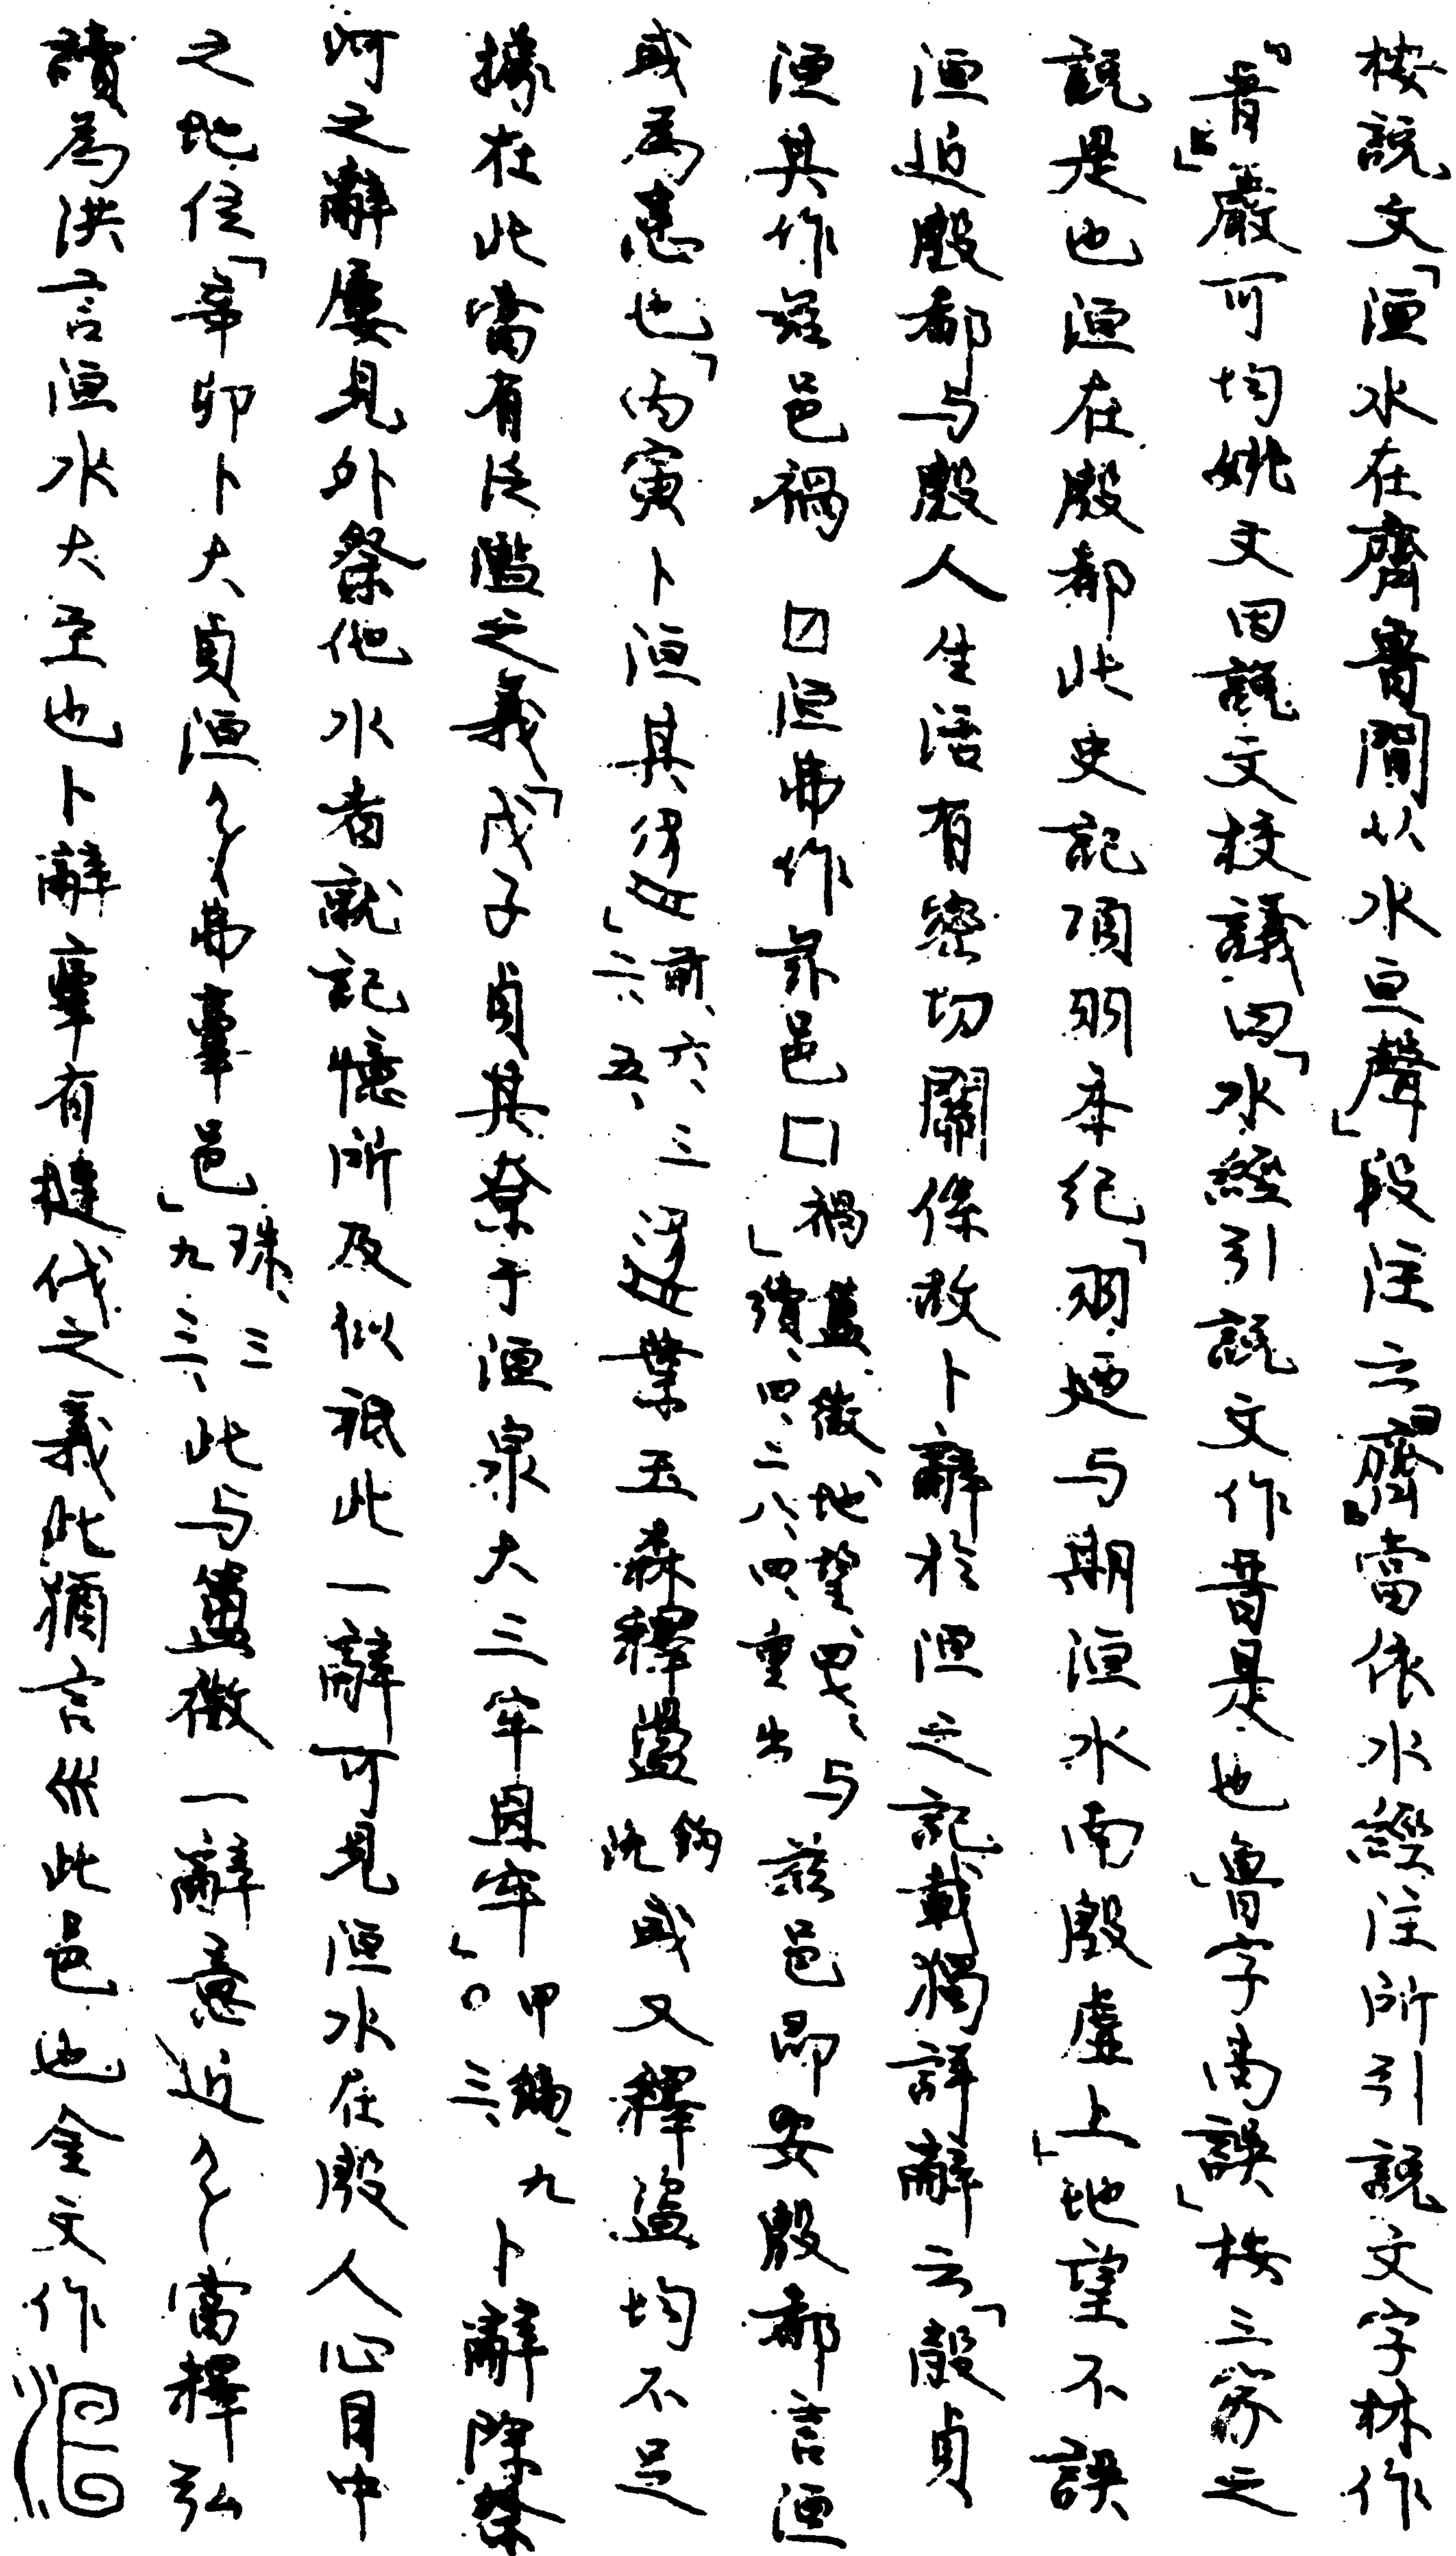 按說文「洹水在齊魯閒从水亘聲」段注云『齊』當依水經注所引說文字林作
『晉』嚴可均姚文田說文校議曰「水經引說文作晉是也魯字尚誤」按三家之
說是也洹在殷都此史記項羽本紀「羽廼与期洹水南殷虛上」地望不誤
洹近殷都与殷人生活有密切關係故卜辭於洹之記載獨詳辭云「㱿貞
洹其作茲邑禍　□洹弗作茲邑□禍」簠、徵、地望、四七、續、四、二八、四、重出与茲邑即安殷都言洹
或為患也「丙寅卜洹其」前、六、三二、五、葉玉森釋盪鉤沈或又釋盜均不足
據在此當有泛濫之義「戊子貞其尞于洹泉大三牢宜牢」甲編、九〇三、卜辭除祭
河之辭屢見外祭他水者就記憶所及似祇此一辭可見洹水在殷人心目中
之地位「辛卯卜大貞洹弘弗𦎫邑」珠、三九三、此与簠徵一辭意近當釋弘
讀為洪言洹水大至也卜辭𦎫有撻伐之義此猶言𡿧此邑也金文作